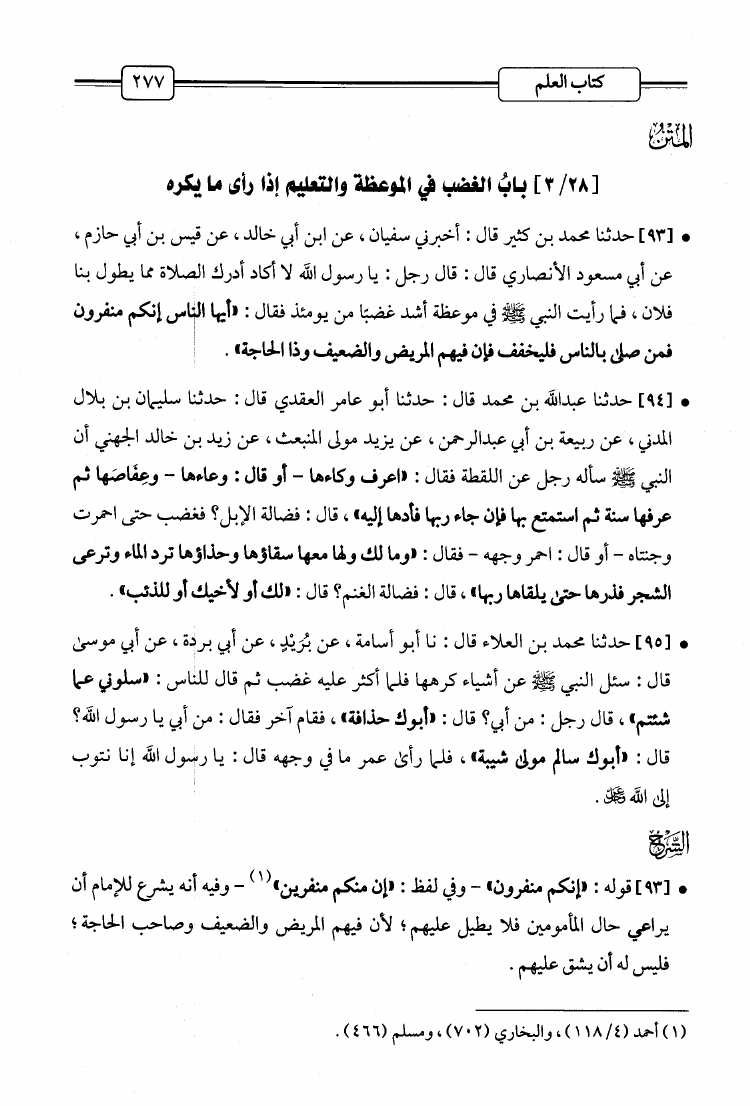 كتاب العلم ٢٧٧
المتن
[٣/٢٨] بابُ الغضب في الموعظة والتعليم إذا رأى ما يكره
• [٩٣] حدثنا محمد بن كثير قال : أخبرني سفيان ، عن ابن أبي خالد ، عن قيس بن أبي حازم ،
عن أبي مسعود الأنصاري قال : قال رجل : يا رسول الله لا أكاد أدرك الصلاة مما يطول بنا
فلان ، فما رأيت النبي ﷺ في موعظة أشد غضبًا من يومئذ فقال : «أيها الناس إنكم منفرون
فمن صلى بالناس فليخفف فإن فيهم المريض والضعيف وذا الحاجة» .
• [٩٤] حدثنا عبدالله بن محمد قال : حدثنا أبو عامر العقدي قال : حدثنا سليمان بن بلال
المدني ، عن ربيعة بن أبي عبدالرحمن ، عن يزيد مولى المنبعث ، عن زيد بن خالد الجهني أن
النبي ﷺ سأله رجل عن اللقطة فقال : «اعرف وكاءها - أو قال : وعاءها - وعِفَاصَها ثم
عرفها سنة ثم استمتع بها فإن جاء ربها فأدها إليه» ، قال : فضالة الإبل؟ فغضب حتى احمرت
وجنتاه - أو قال : احمر وجهه - فقال : «وما لك ولها معها سقاؤها وحذاؤها ترد الماء وترعى
الشجر فذرها حتى يلقاها ربها» ، قال : فضالة الغنم؟ قال : «لك أو لأخيك أو للذئب» .
• [٩٥] حدثنا محمد بن العلاء قال : نا أبو أسامة ، عن بُرَيْدٍ ، عن أبي بردة ، عن أبي موسى
قال : سئل النبي ﷺ عن أشياء كرهها فلما أكثر عليه غضب ثم قال للناس : «سلوني عما
شئتم» ، قال رجل : من أبي؟ قال : «أبوك حذافة» ، فقام آخر فقال : من أبي يا رسول الله؟
قال : «أبوك سالم مولى شيبة» ، فلما رأى عمر ما في وجهه قال : يا رسول الله إنا نتوب
إلى الله ﷻ .
الشرح
• [٩٣] قوله : «إنكم منفرون» - وفي لفظ : «إن منكم منفرين»(١) - وفيه أنه يشرع للإمام أن
يراعي حال المأمومين فلا يطيل عليهم ؛ لأن فيهم المريض والضعيف وصاحب الحاجة ؛
فليس له أن يشق عليهم .
(١) أحمد (٤/ ١١٨) ، والبخاري (٧٠٢) ، ومسلم (٤٦٦) .